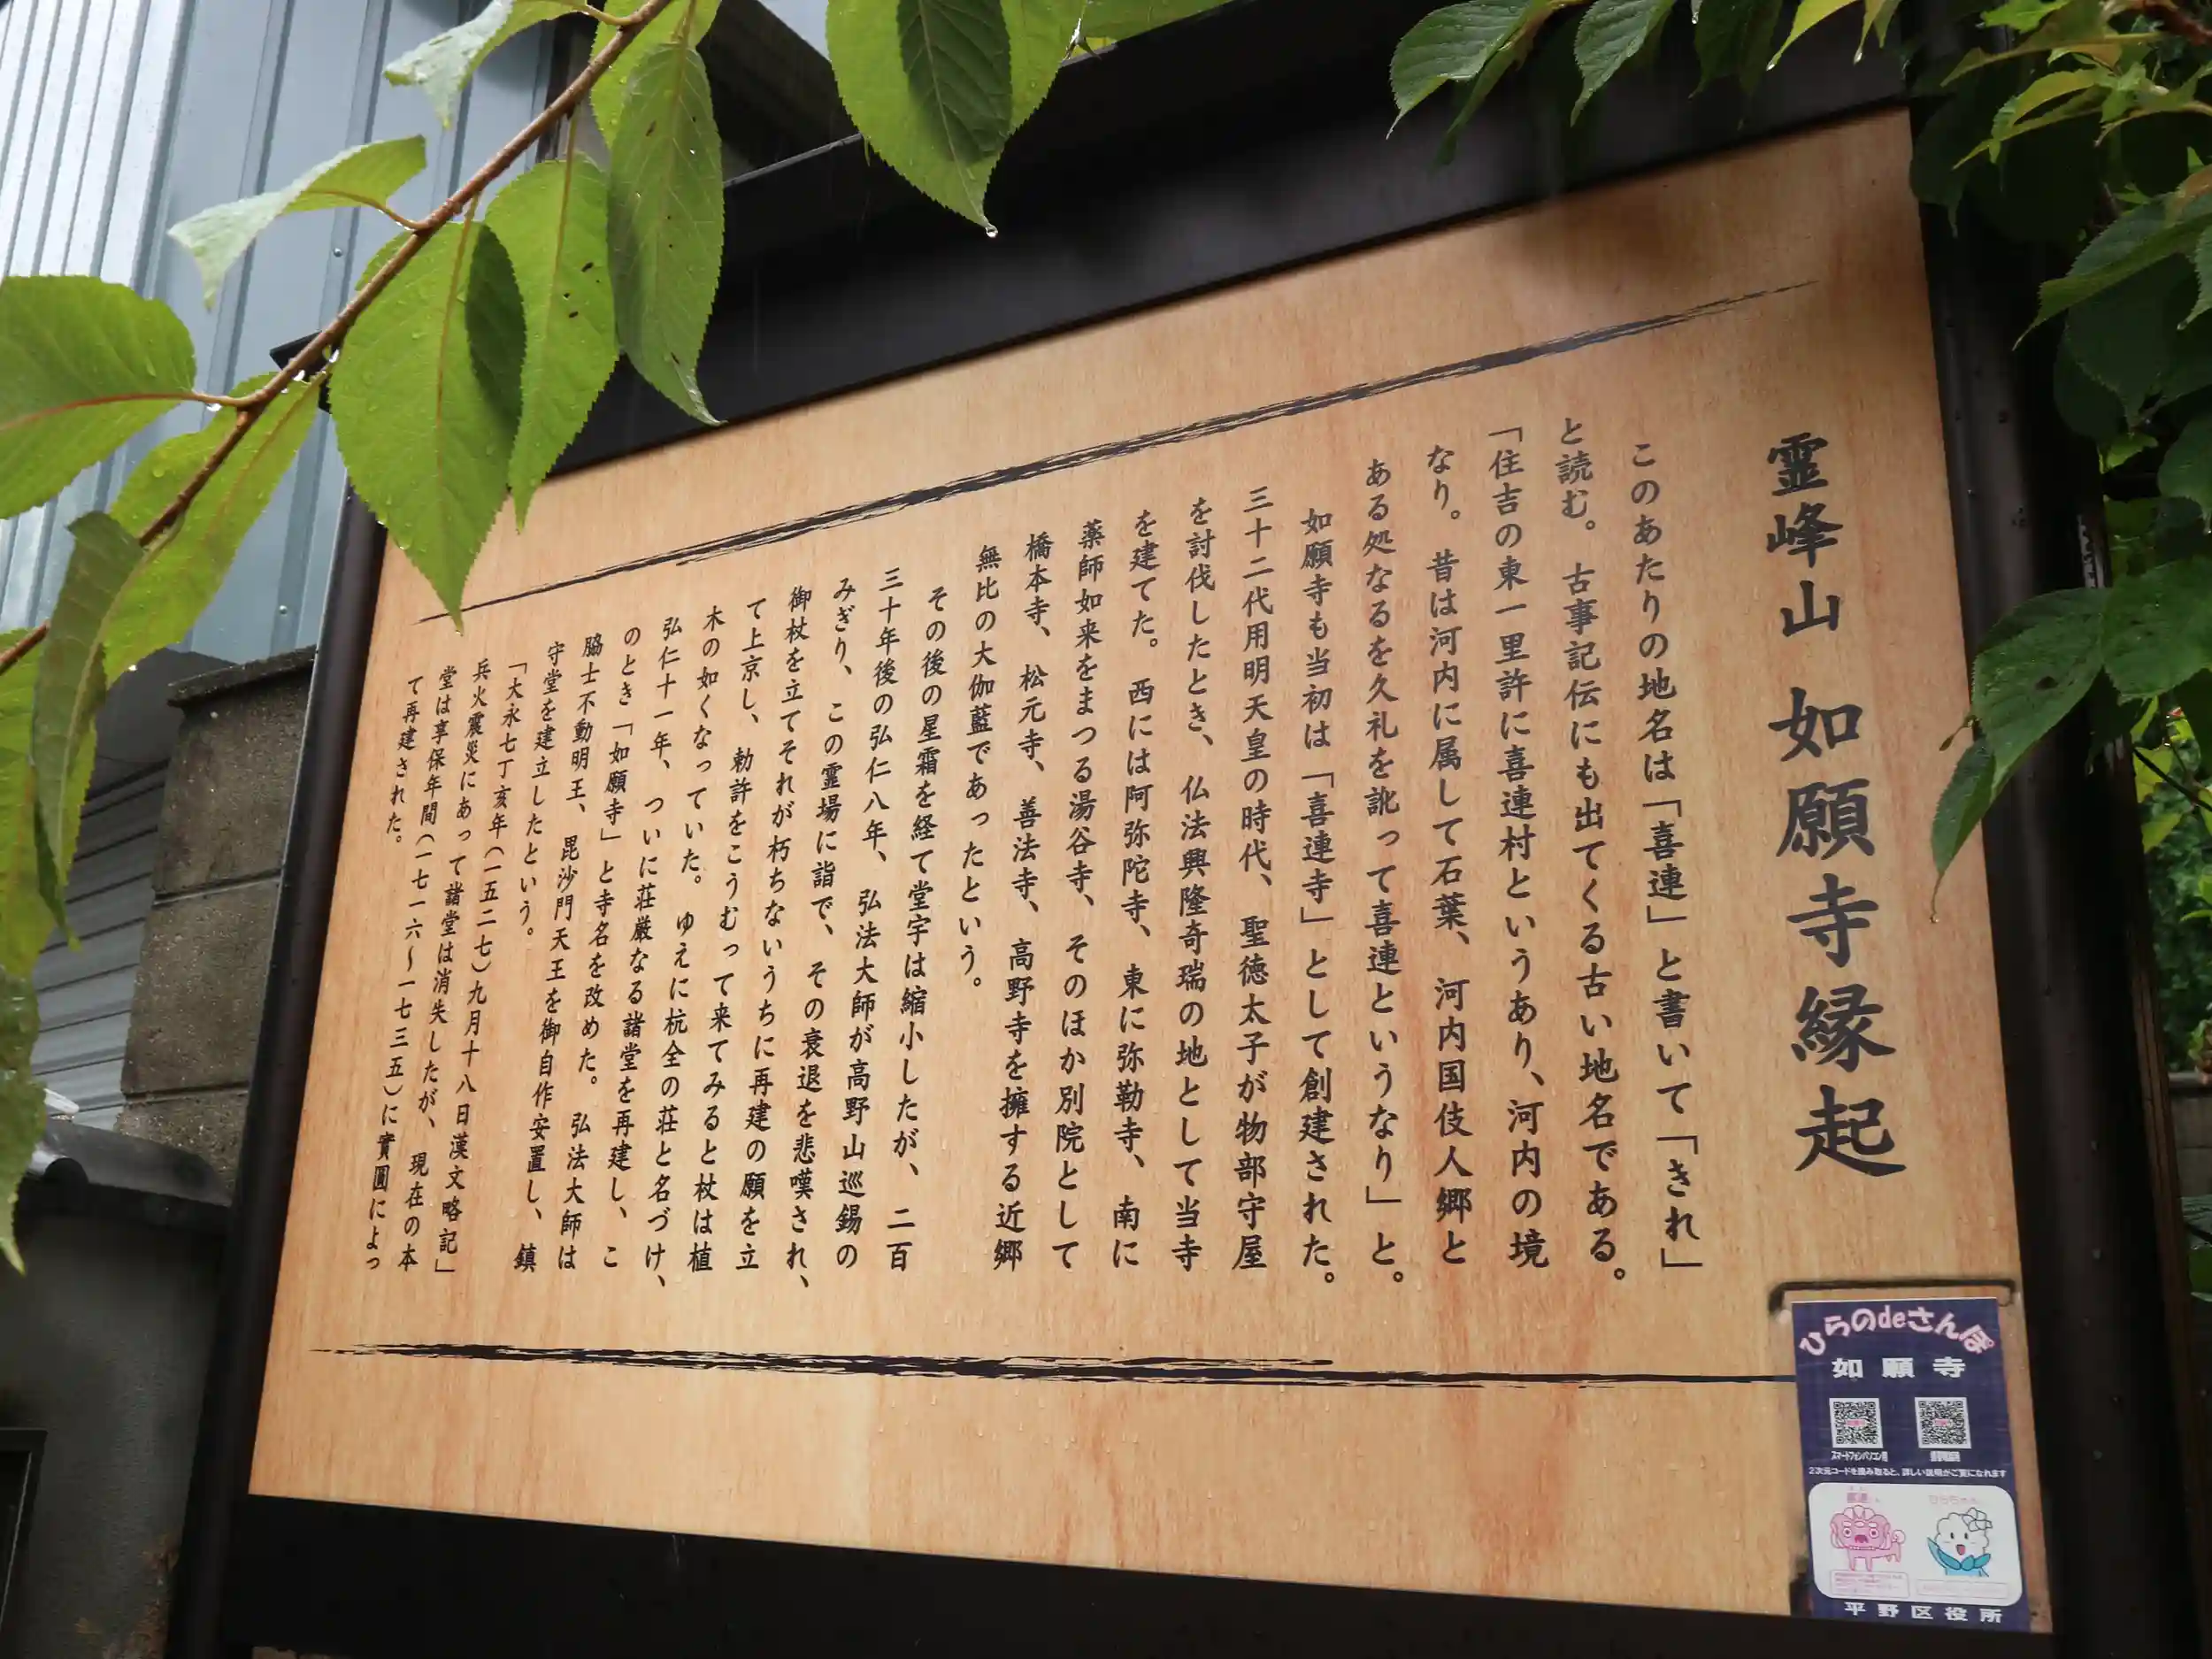 霊峰山 如願寺縁起
このあたりの地名は「喜連」と書いて「きれ」
と読む。古事記伝にも出てくる古い地名である。
「住吉の東一里許に喜連村というあり、河内の境
なり。昔は河内に属して石葉、河内国伎人郷と
ある処なるを久礼を訛って喜連というなり」と。
如願寺も当初は「喜連寺」として創建された。
三十二代用明天皇の時代、聖徳太子が物部守屋
を討伐したとき、仏法興隆奇瑞の地として当寺
を建てた。西には阿弥陀寺、東に弥勒寺、南に
薬師如来をまつる湯谷寺、そのほか別院として
橋本寺、松元寺、善法寺、高野寺を擁する近郷
無比の大伽藍であったという。
その後の星霜を経て堂宇は縮小したが、二百
三十年後の弘仁八年、弘法大師が高野山巡錫の
みぎり、この霊場に詣で、その衰退を悲嘆され、
御杖を立てそれが朽ちないうちに再建の願を立
て上京し、勅許をこうむって来てみると杖は植
木の如くなっていた。ゆえに杭全の荘と名づけ、
弘仁十一年、ついに荘厳なる諸堂を再建し、こ
のとき「如願寺」と寺名を改めた。弘法大師は
脇士不動明王、毘沙門天王を御自作安置し、鎮
守堂を建立したという。
「大永七丁亥年(一五二七)九月十八日漢文略記」
兵火震災にあって諸堂は消失したが、現在の本
堂は享保年間(一七一六〜一七三五)に實圓によっ
て再建された。
ひらのdeさんぽ
如願寺
スマートフォン/パソコン用
2次元コードを読み取ると、詳しい説明がご覧になれます
平野区役所